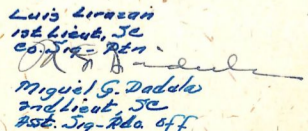 Luis Lirazan
1st Lieut, SC
Co Sig-Ptn
Miguel G. Dadula
2nd Lieut, SC
Asst. Sig-Rdo. Off